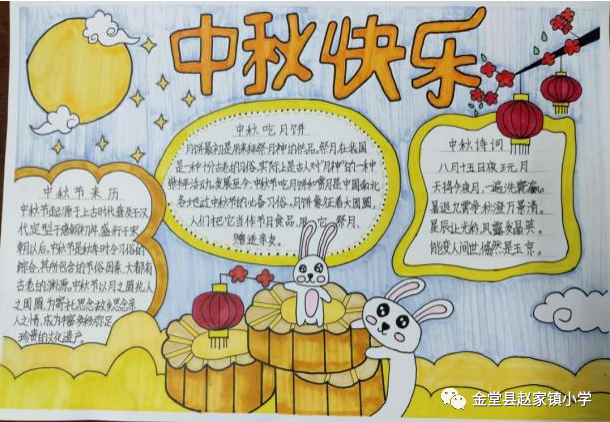 中秋快乐
中秋吃月饼
月饼最初是用来拜祭月神的供品。祭月在我国
是一种十分古老的习俗，实际上是古人对"月神"的一种
崇拜活动。发展至今，中秋节吃月饼和赏月是中国南北
各地过中秋节的必备习俗。月饼象征着大团圆，
人们把它当作节日食品，用它祭月、
赠送亲友。
中秋诗词
八月十五日夜玩月
天将今夜月，一遍洗寰瀛。
暑退九霄净，秋澄万景清。
星辰让光彩，风露发晶英。
能变人间世，翛然是玉京。
中秋节来历
中秋节起源于上古时代，普及于汉
代，定型于唐朝初年，盛行于宋
朝以后。中秋节是秋季时令习俗的
综合，其所包含的节俗因素，大都有
古老的渊源。中秋节以月之圆兆人
之团圆，为寄托思念故乡，思念亲
人之情，成为丰富多彩、弥足
珍贵的文化遗产。
金堂县赵家镇小学